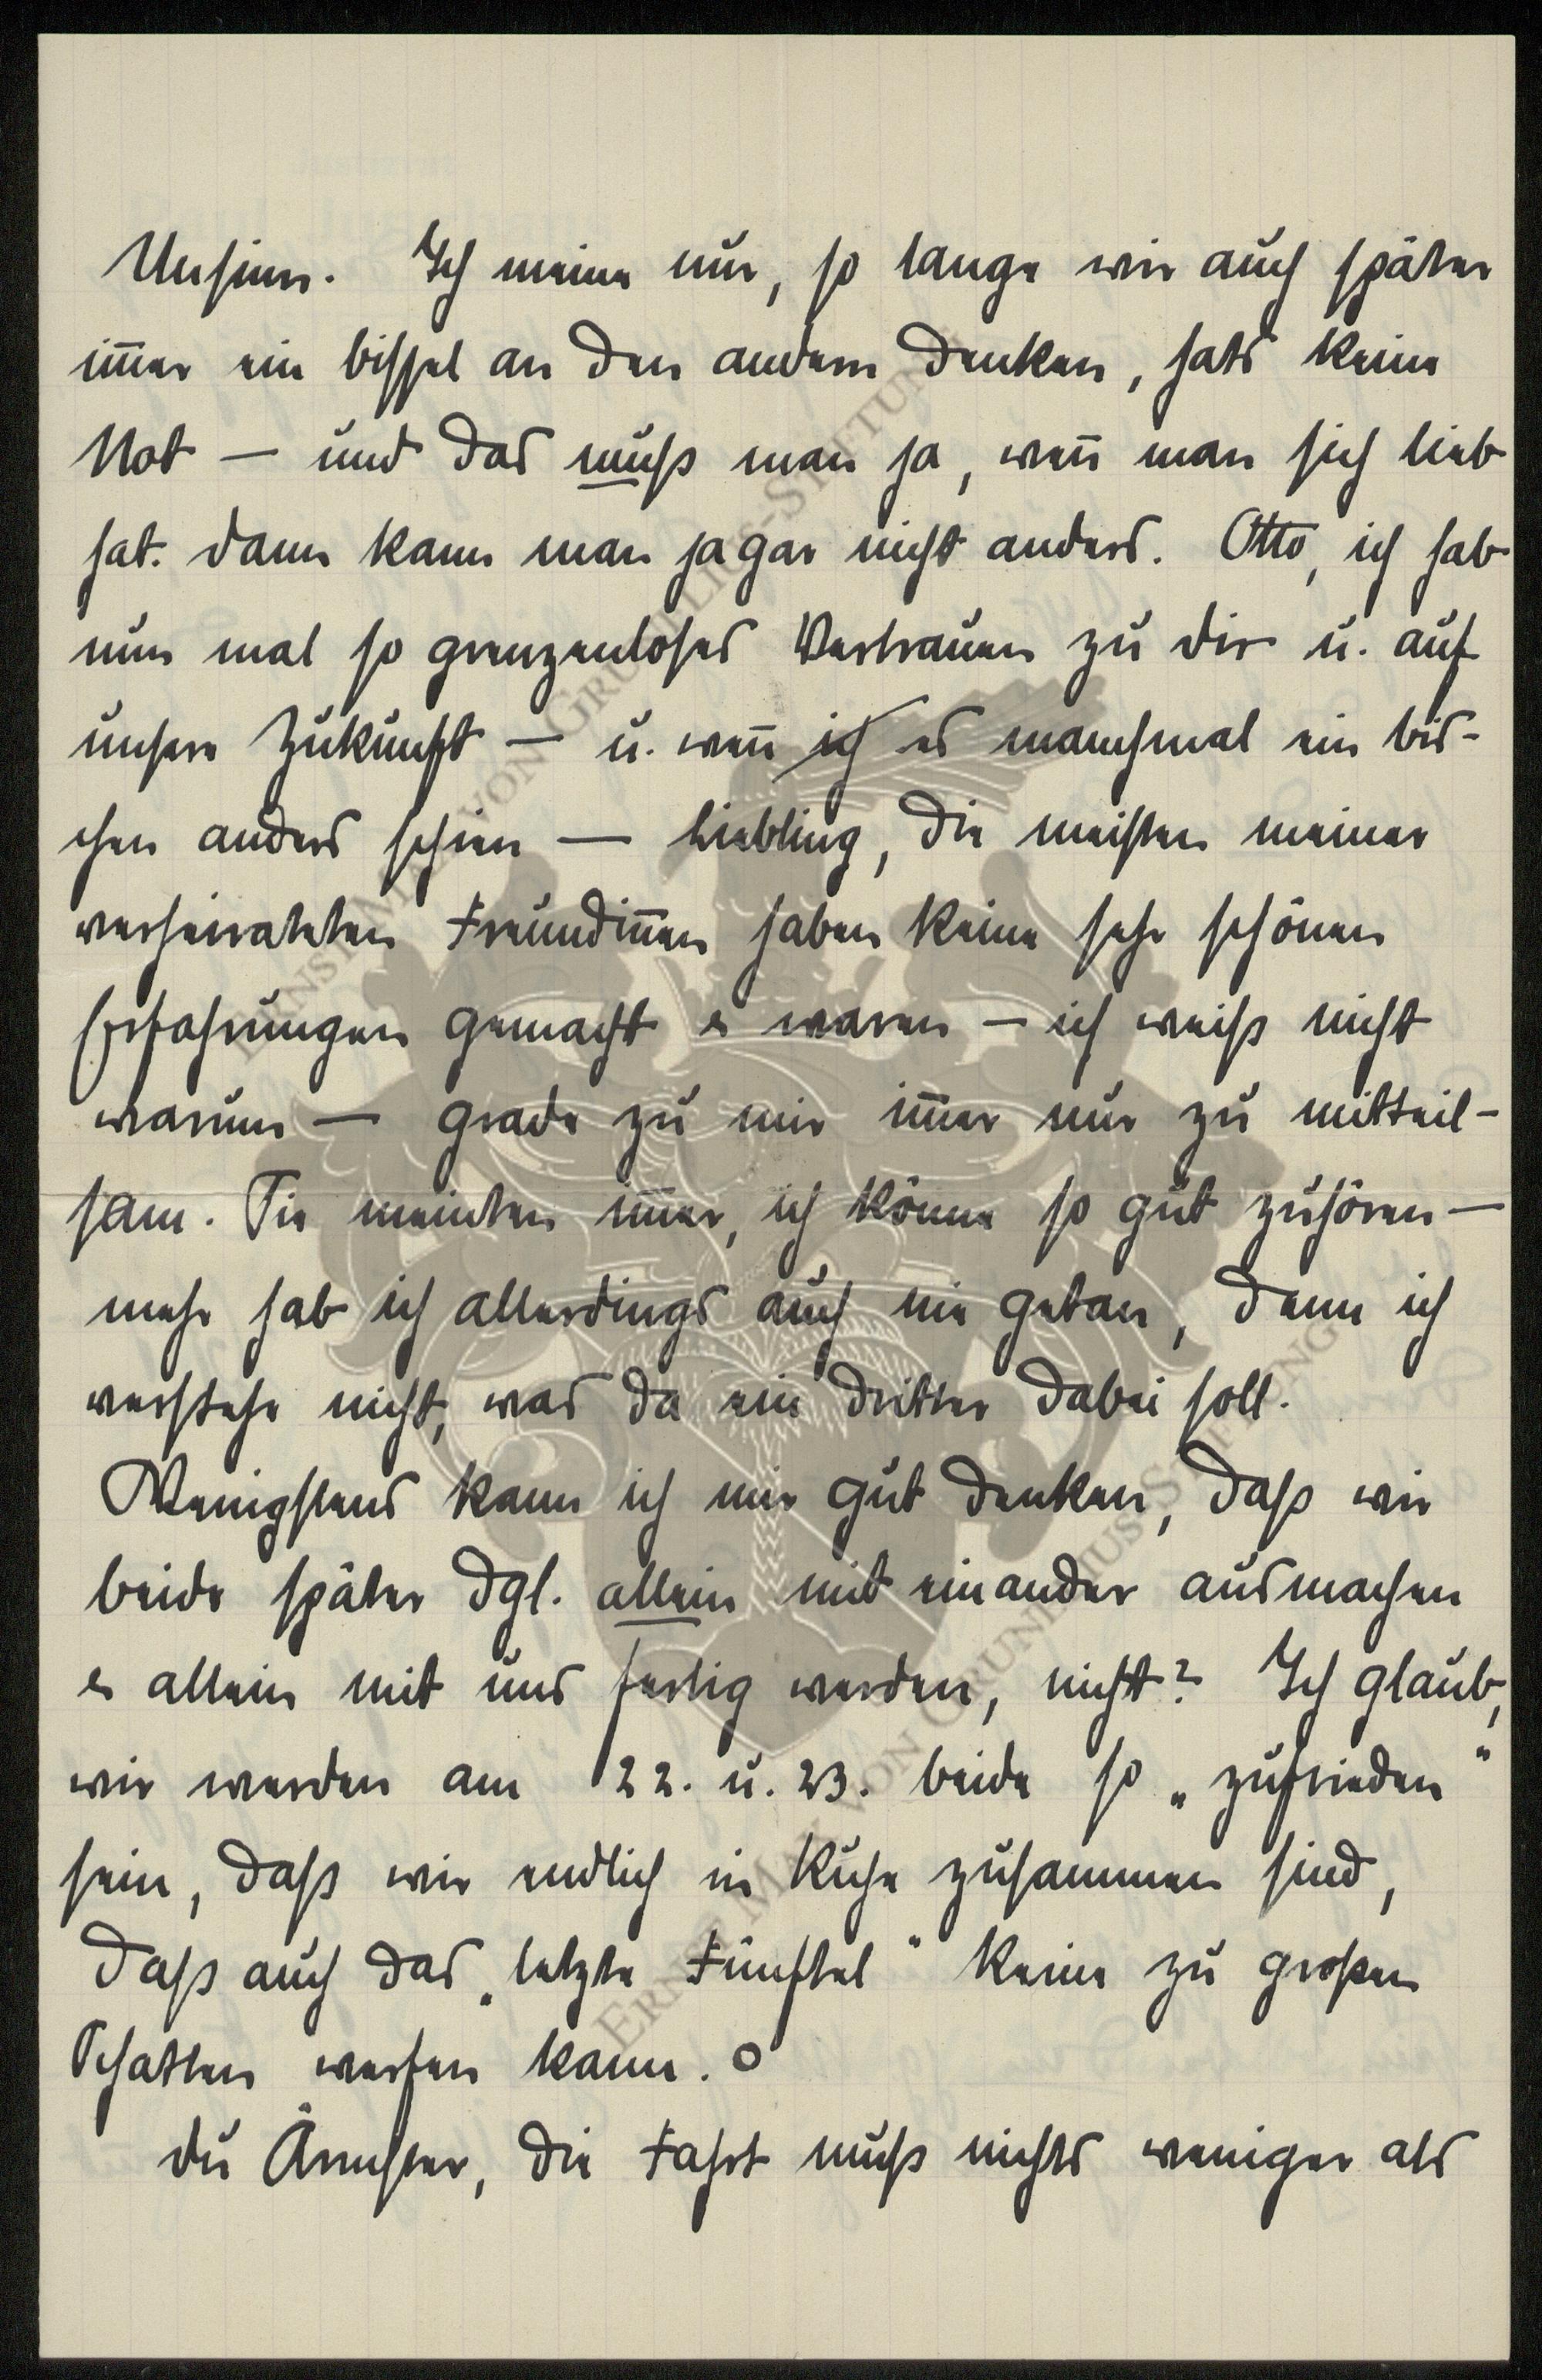 Unsinn. Ich meine nur, so lange wir auch später
im̅er ein bissel an den andern denken, hats keine
Not — und das muß man ja, wen̅ man sich lieb
hat. Dann kann man ja gar nicht anders. Otto, ich hab
nun mal so grenzenloses Vertrauen zu Dir u. auf
unsere Zukunft — u. wen̅ ich es manchmal ein bis-
chen anders schien — Liebling, die meisten meiner
verheirateten Freundin̅en haben keine sehr schönen
Erfahrungen gemacht & waren — ich weiß nicht
warum — grade zu mir im̅er nur zu mitteil-
sam. Sie meinten im̅er, ich könne so gut zuhören —
mehr hab ich allerdings auch nie getan, denn ich
verstehe nicht, was da ein dritter dabei soll.
Wenigstens kann ich mir gut denken, daß wir
beide später dgl. allein mit einander ausmachen
& allein mit uns fertig werden, nicht? Ich glaub,
wir werden am 22. u. 23. beide so „zufrieden"
sein, daß wir endlich in Ruhe zusammen sind,
daß auch das „letzte Fünftel" keine zu großen
Schatten werfen kann. o
Du Ärmster, die Fahrt muß nichts weniger als
ERNST MAX VON GRUNELIUS-STIFTUNG
ERNST MAX VON GRUNELIUS-STIFTUNG